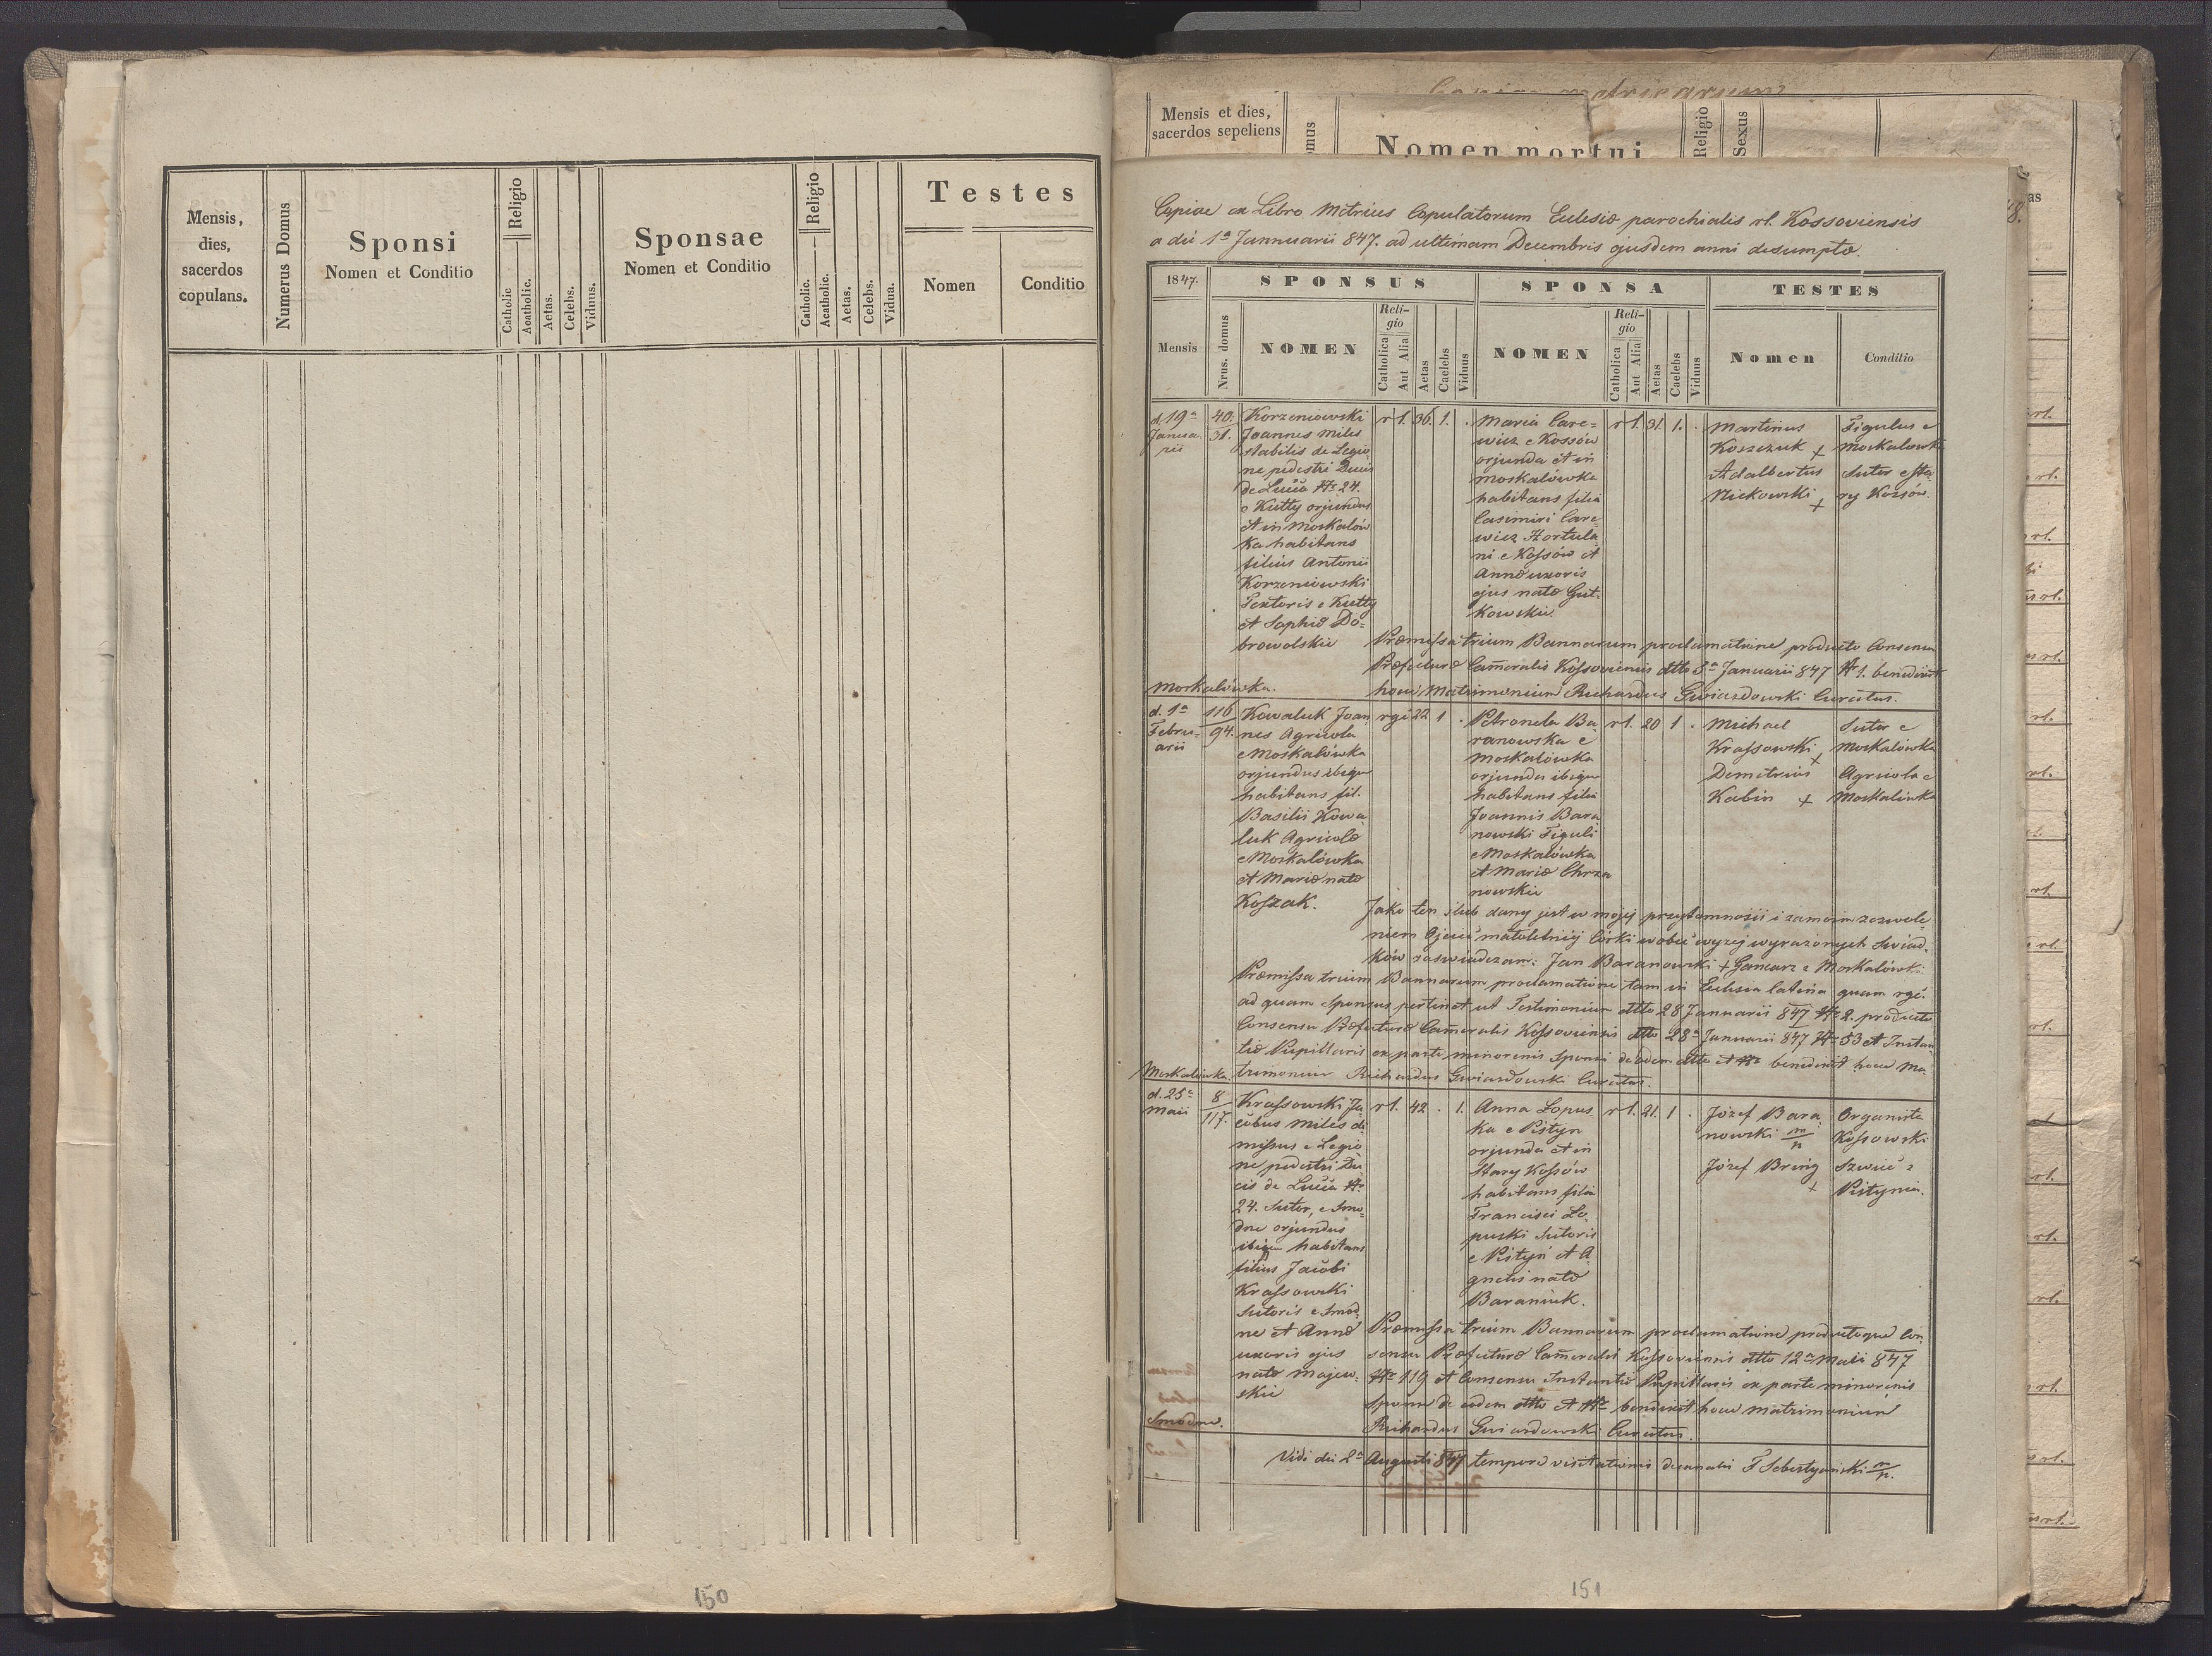 Mensis,
dies,
sacerdos
copulans.
Numerus Domus
Sponsi
Nomen et Conditio
Religio
Catholic
Acatholic.
Aetas.
Celebs.
Viduus.
Sponsae
Nomen et Conditio
Religio
Catholic.
Acatholic.
Aetas.
Celebs.
Vidua.
Testes
Nomen
Conditio
150
Mensis et dies,
sacerdos sepeliens
Nomen mortui
Religio
Sexus
Copiae ex Libro Metrices Copulatorum Eclesiae parochialis rl. Kossoviensis
a die 1a Jannuarii 847. ad ultimam Decembris ejusdem anni desumptae.
1847.
SPONSUS
SPONSA
TESTES
Mensis
Nrus. domus
NOMEN
Religio
Catholica
Aut Alia
Aetas
Caelebs
Viduus
NOMEN
Religio
Catholica
Aut Alia
Aetas
Caelebs
Viduus
Nomen
Conditio
d. 19a
Janua
rii
40.
31.
Korzeniowski
Joannes Miles
stabilis de Legio
ne pedestri Ducis
de Lucca No 24.
e Kutty orjundus
et in Moskalow
ka habitans
filius Antonii
Korzeniowski
Textoris e Kutty
et Sophiae Do=
browolskie
rl. 36. 1. .
Maria Care=
wicz e Kossów
orjunda et in
Moskalówka
habitans filia
Casimiri Care
wicz Hortula
ni e Kossów et
Annae uxoris
ejus natae Gut=
kowskie
rl. 31. 1. .
Martinus
Koszczuk +
Adalbertus
Nickowski +
Figulus e
Moskalowk
Sutor e Sta
ry Kossów.
Praemissa trium Bannarum proclamatione producto Consensu
Praefecturae Cameralis Kossoviensis dtto 8a Januarii 847 No 1. benedixit
hocce Matrimonium Richardus Gwiazdowski Curatus.
Moskalówka.
d. 1a
Febru=
arii
116
94.
Kowaluk Joan
nes Agricola
e Moskalówka
orjundus ibique
habitans fil.
Basilii Kowa
luk Agricolae
e Moskalówka
et Mariae natae
Koszak.
rgc 22 1 .
Petronela Ba
ranowska e
Moskalówka
orjunda ibique
habitans filia
Joannis Bara
nowski Figuli
e Moskalówka
et Mariae Chrza
nowskie
rl. 20 1 .
Michael
Krassowski +
Demitrius
Kabin +
Sutor e
Moskalówka
Agricola e
Moskalówka
Jako ten ślub dany jest w mojej przytomności i zamoim zezwole
niem Ojciec małoletniej Córki wobec wyżej wyrażonych Świad.
ków zaświadczam: Jan Baranowski + Gancarz z Moskalówki
Praemissa trium Bannarum proclamatione tam in Eclesia latina quam rgc.
ad quam Sponsus pertinet ut Testimonium dtto 28 Januarii 847 No 2. producto
Consensu Praefecturae Cameralis Kossoviensis dtto 28a Januarii 847 No 53 et Instan
tiae Pupillaris ex parte minorenis Sponsae de eodem dtto et No benedixit hocce Ma.
trimonium Richardus Gwiazdowski Curatus.
Moskalówka.
d. 25a
Maii
8
117.
Krassowski Ja
cobus Miles di
missus e Legio
ne pedestri Du
cis de Lucca No
24. Sutor, e Smo=
dne orjundus
ibique habitans
filius Jacobi
Krassowski
Sutoris e Smod
ne et Annae
uxoris ejus
natae Majew=
skie
rl. 42 . 1.
Anna Lopus
ka e Pistyn
orjunda et in
Stary Kossów
habitans filia
Francisci Lo
puski Sutoris
e Pistyń et A
gnetis natae
Baraniuk.
rl. 21. 1 .
Józef Bara
nowski m/p
Józef Bring
+
Organista
Kossowski
Szwiec z
Pistynia.
Praemissa trium Bannarum proclamatione productoque Con
sensu Praefecturae Cameralis Kossoviensis dtto 12a Maii 847
No 119 et Consensu Instantiae Pupillaris ex parte minorenis
Sponsae de eodem dtto et No benedixit hocce Matrimonium
Richardus Gwiazdowski Curatus.
Smodne.
Vidi die 2a Augusti 847 tempore visitationis decanalis F Sebestyański m/p.
151